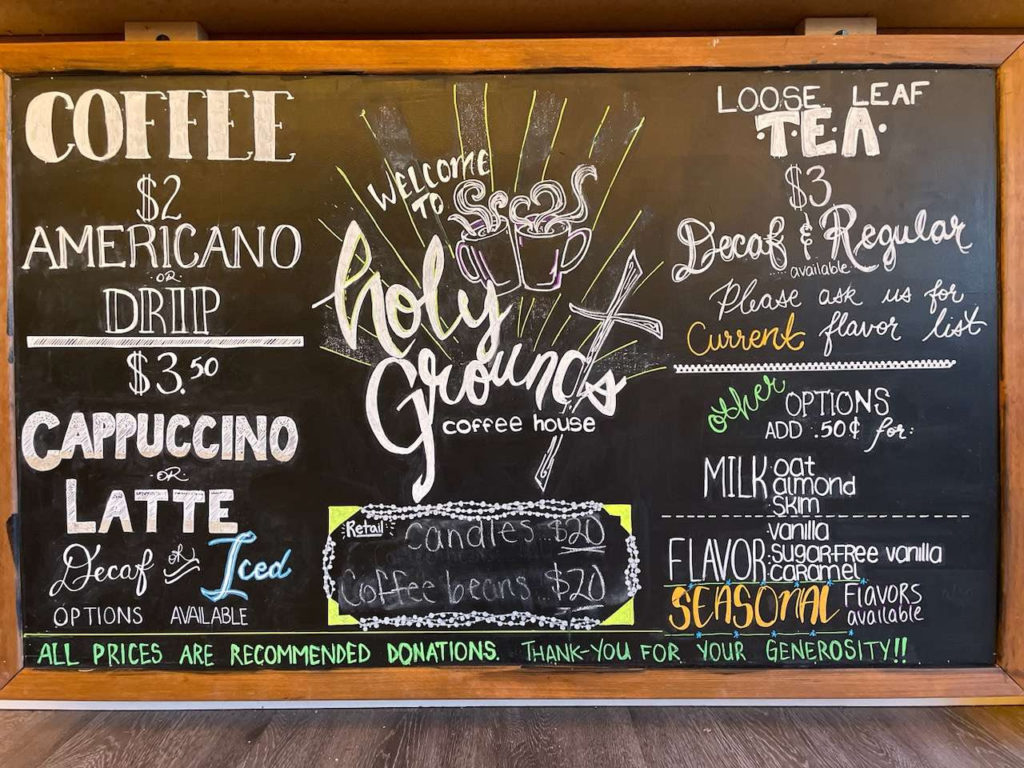 COFFEE
$2
AMERICANO
OR
DRIP
$3.50
CAPPUCCINO
OR
LATTE
Decaf or Iced
OPTIONS AVAILABLE
WELCOME
TO
Holy
Grounds
coffee house
Retail
Candles $20
Coffee beans $20
LOOSE LEAF
T.E.A.
$3
Decaf & Regular
available
Please ask us for
Current flavor list
other OPTIONS
ADD .50¢ for:
MILK oat
almond
skim
FLAVOR: vanilla
sugar-free vanilla
caramel
SEASONAL Flavors
available
ALL PRICES ARE RECOMMENDED DONATIONS. THANK-YOU FOR YOUR GENEROSITY!!